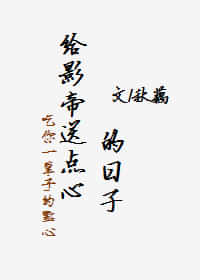 给影帝送点心
的日子
文/秋
吃你一辈子的點心